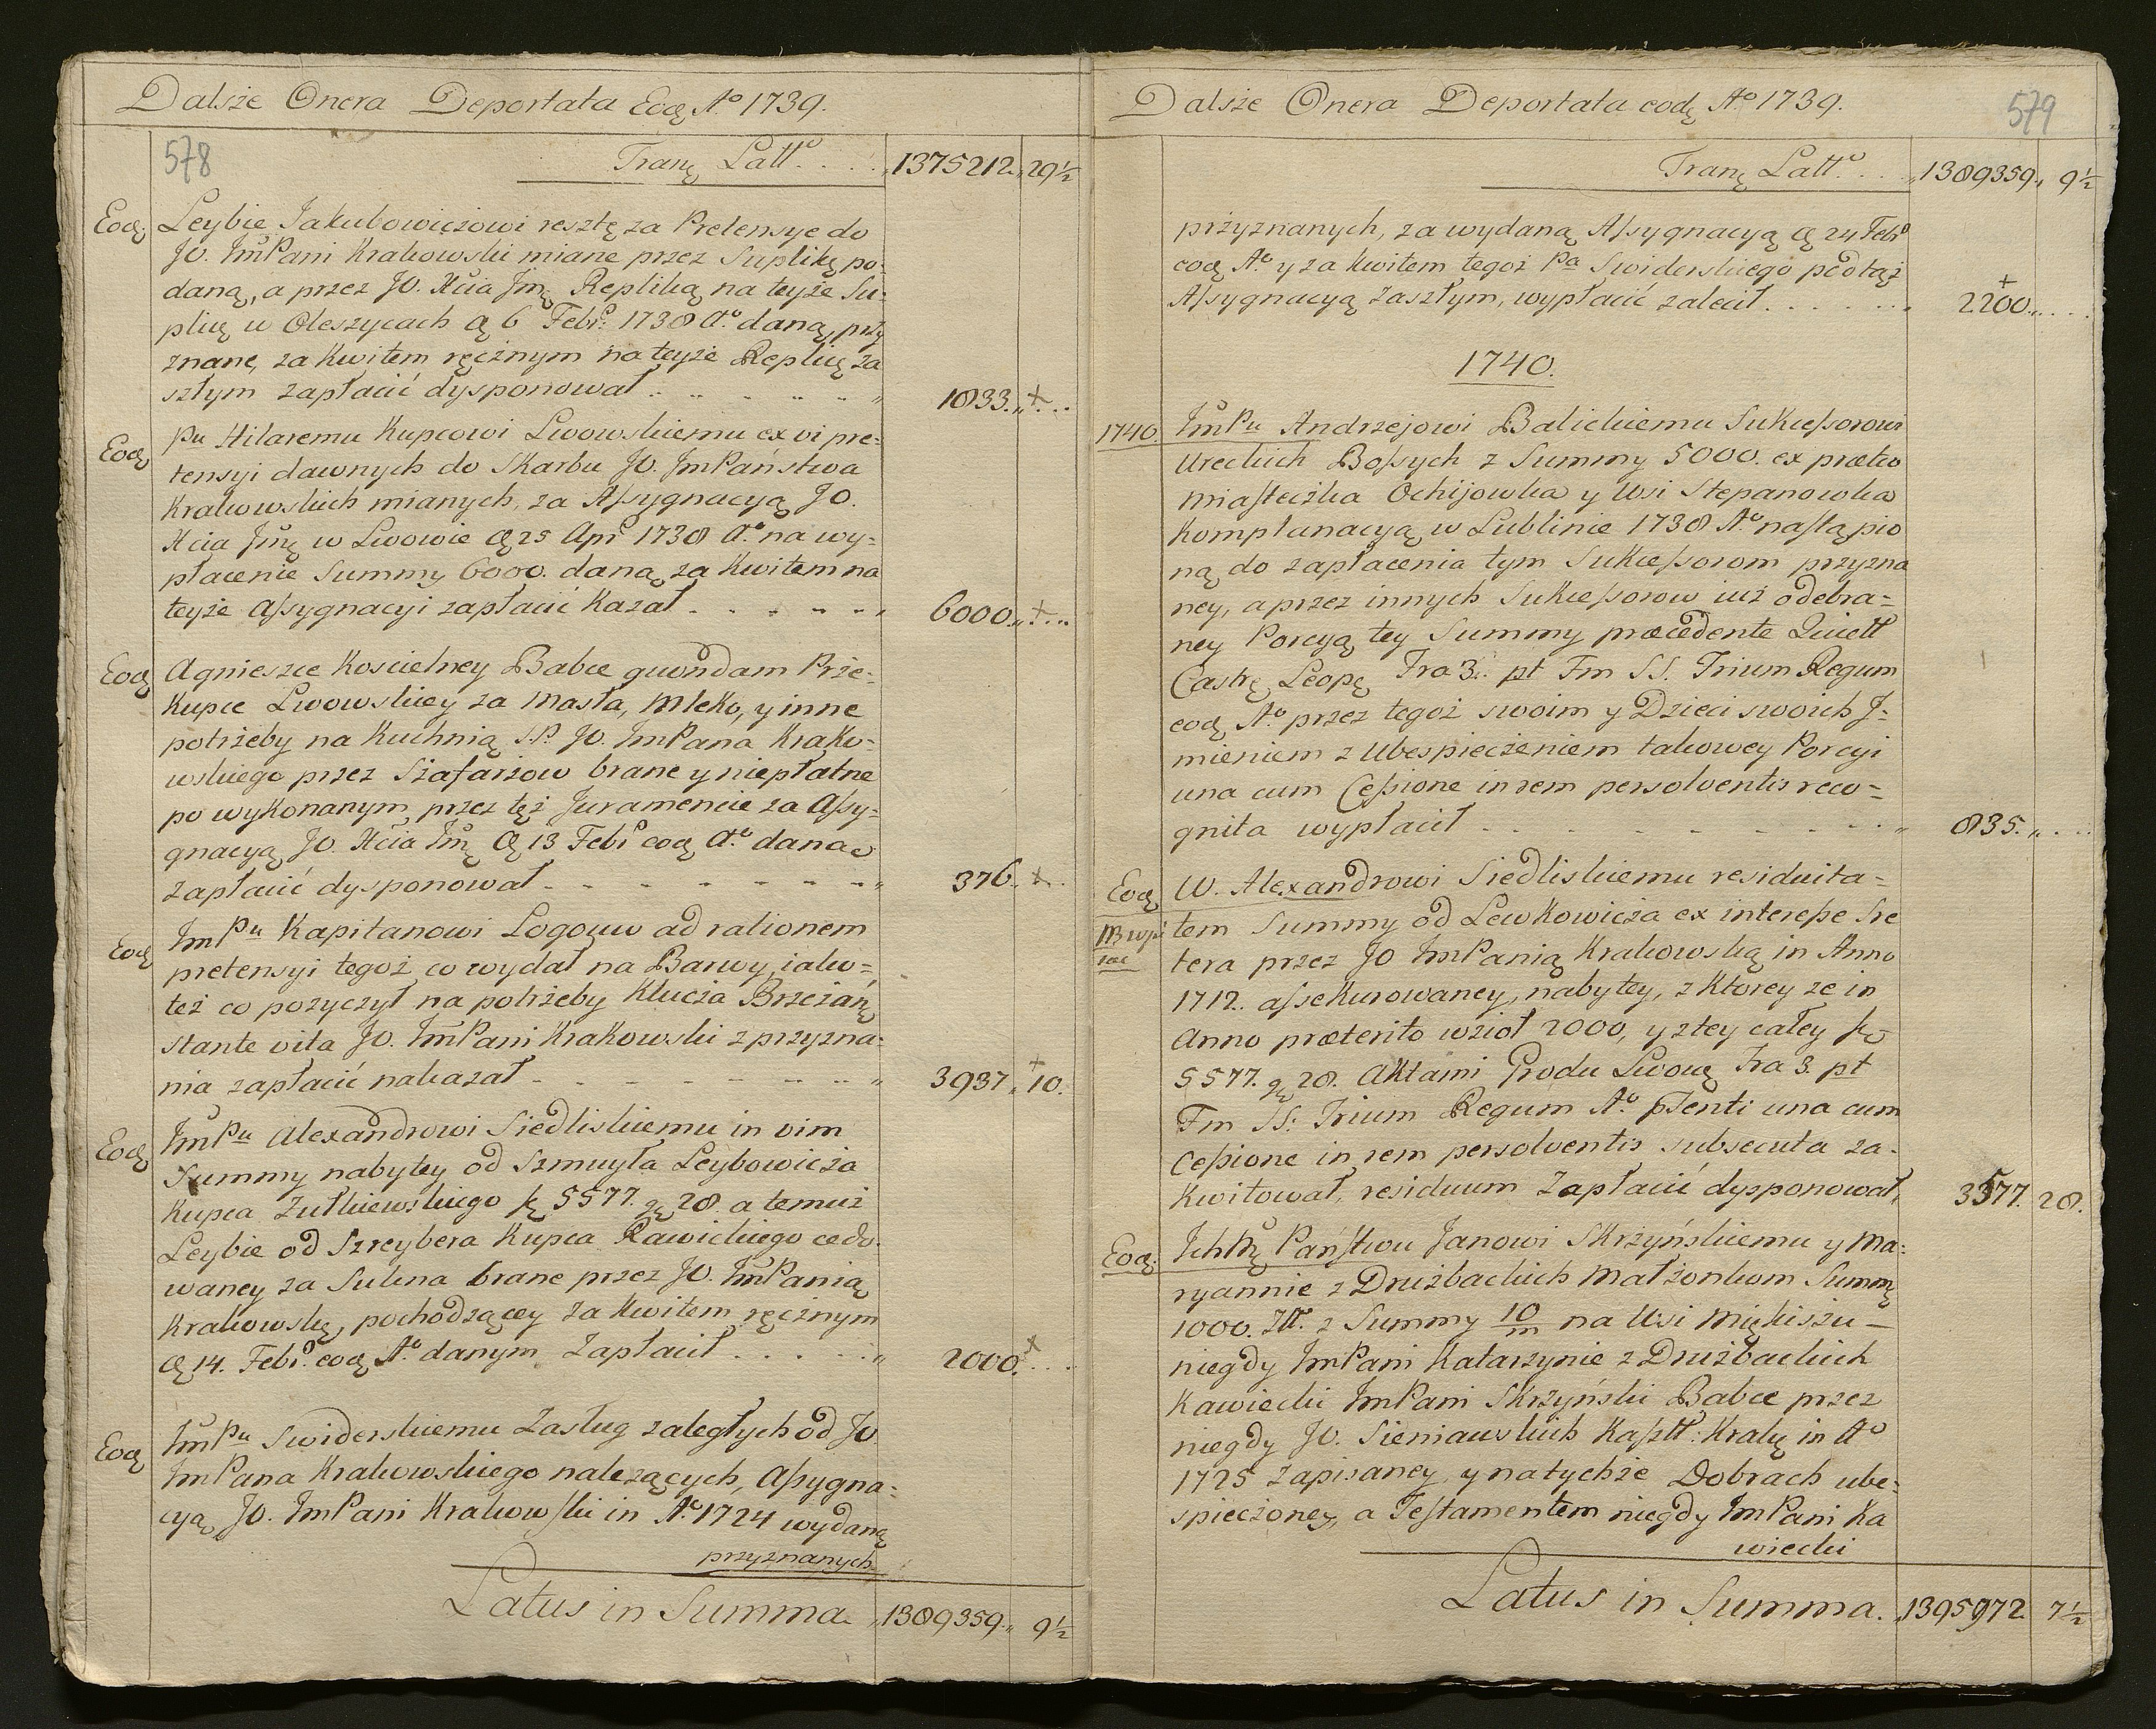 Dalsze Onera Deportata Eoq A° 1739.
578
Tranq Latt° . . . 1375212. 29½
Eoq. Leybie Jakubowiczowi resztę za Pretensye do
JO. ImPani Krakowski miane przez Suplikę po-
daną, a przez JO. Xcia Jmę Repliką na teyże Su-
plicę w Oleszycach Dę 6 Febr: 1738 A° daną, przy
znane, za Kwitem ręcznym na teyże Replicę za
szłym zapłacić dysponował . . . 1833. +
Eoq Pu Hilaremu Kupcowi Lwowskiemu ex vi pre-
tensyi dawnych do Skarbu JO. ImPaństwa
Krakowskich mianych, za Assygnacyą JO.
Xcia Jmę w Lwowie Dę 25 Apr 1738 A° na wy-
płacenie Summy 6000. daną, za Kwitem na
teyże Assygnacyi zapłacić Kazał . . . 6000. +
Eoq Agnieszce Koscielney Babce quondam Prze-
kupce Lwowskiey za Masła, Mleko, y inne
potrzeby na Kuchnią SP. JO. ImPana Krako-
wskiego przez Szafarzow brane y niepłatne
po wykonanym przez tęż Juramencie za Assy-
gnacyą JO. Xcia Jmę Dę 13 Febr eoq A° daną
zapłacić dysponował . . . 376. +
Eoq ImPu Kapitanowi Logouw ad rationem
pretensyi tegoż, co wydał na Barwy, iako-
też co pozyczył na potrzeby Klucza Brzeżanę
stante vita JO. ImPani Krakowski z przyzna-
nia zapłacić nakazał . . . 3937. + 10.
Eoq ImPu Alexandrowi Siedliskiemu in vim
Summy nabytey od Szmuyła Leybowicza
Kupca Zułkiewskiego fę 5577. gę 28. a temuż
Leybie od Szreybera Kupca Rawickiego cedo-
waney za Sukna brane przez JO. ImPanią
Krakowskę, pochodzącey za Kwitem ręcznym
Dę 14. Febr. eoq A° danym Zapłacił . . . 2000. +
Eoq ImPu Swiderskiemu Zasług zaległych od JO.
ImPana Krakowskiego należących, Assygna-
cyą JO. ImPani Krakowski in A° 1724 wydaną
przyznanych
Latus in Summa. 1389359. 9½
Dalsze Onera Deportata eodę A° 1739.
579
Tranq Latt° . . . 1389359. 9½
przyznanych, za wydaną Assygnacyą Dę 24 Febr
eoq A° y za Kwitem tegoż Pa Swiderskiego pod tąż
Assygnacyą zaszłym, wypłacić zalecił . . . + 2200.
1740.
1740. ImPu Andrzejowi Balickiemu Sukcessorowi
Ureckich Bossych z Summy 5000. ex prætio
Miasteczka Ochijowka y Wsi Stepanowka
Komplanacyą w Lublinie 1738 A° nastąpio
ną do zapłacenia tym Sukcessorom przyzna
ney, a przez innych Sukcessorow iuż odebra-
ney Porcyą tey Summy præcedente Quiett
Castrę Leopę Fra 3. pt Fm SS. Trium Regum
eoq A° przez tegoż swoim y Dzieci swoich J-
mieniem z Ubespieczeniem takowey Porcyi
una cum Cessione in rem persolventis reco-
gnita wypłacił . . . 835.
Eoq W. Alexandrowi Siedliskiemu residuita-
tem Summy od Lewkowicza ex interesse Sre
tera przez JO ImPanią Krakowską in Anno
1712. assekurowaney, nabytey, z ktorey że in
Anno præterito wzioł 2000, y z tey całey fę
5577. gę 28. Aktami Grodu Lwowę Fra 3. pt
Fm SS: Trium Regum A° ptenti una cum
Cessione in rem persolventis subsecuta za-
kwitował, residuum Zapłacić dysponował, 3577. 28.
Eoq. Ichmę Państwu Janowi Skrzyńskiemu y Ma-
ryannie z Drużbackich Małżonkom Summę
1000. Złt. z Summy 10/m na Wsi Miękiszu
niegdy ImPani Katarzynie z Drużbackich
Kawiecki ImPani Skrzyński Babce przez
niegdy JO. Sieniawskich Kasztt: Krakę in A°
1725 zapisaney, y na tychże Dobrach ube-
spieczoney, a Testamentem niegdy ImPani Ka
wiecki
Latus in Summa. 1395972. 7½